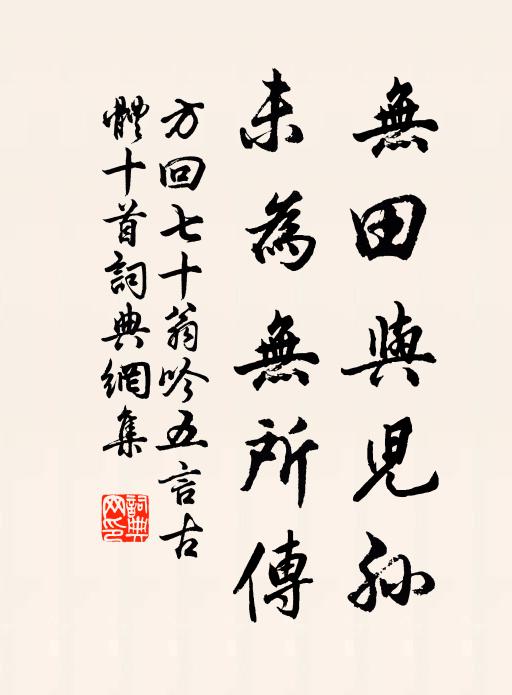 無田與兒孫
未為無所傳
方回七十翁吟五言古
體十首詞典網集
詞典網印